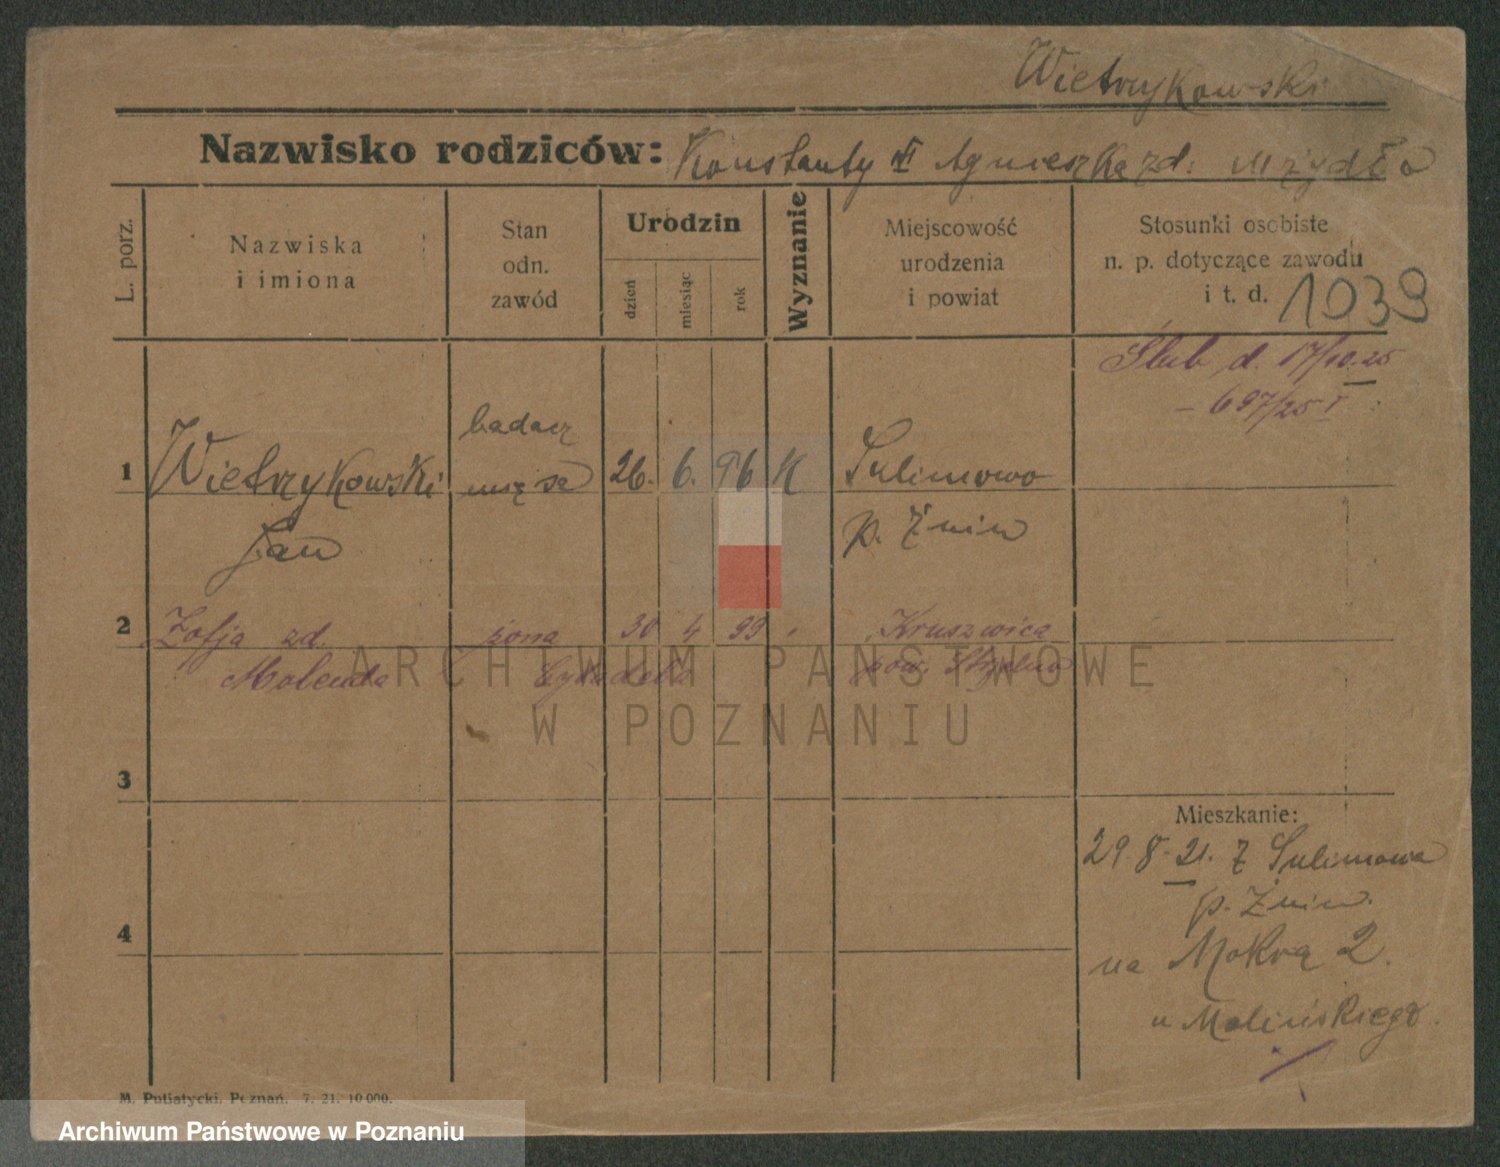 Wietrzykowski
Nazwisko rodziców: Konstanty i Agnieszka zd. Mrzydło
L. porz.
Nazwiska
i imiona
Stan
odn.
zawód
Urodzin
dzień
miesiąc
rok
Wyznanie
Miejscowość
urodzenia
i powiat
Stosunki osobiste
n. p. dotyczące zawodu
i t. d. 1039
Ślub d. 17/10.25
- 697/25 I
1 Wietrzykowski badacz mięsa 26. 6. 96 K Sulinowo
Jan p. Żnin
2 Zofja zd. żona 30 4 99 Kruszwica
Molenda pow. Strzelno
3
4
Mieszkanie:
29. 8. 21. Z Sulinowa
p. Żnin.
na Mokrą 2.
u Malińskiego.
M. Putiatycki, Poznań. 7. 21. 10 000.
ARCHIWUM PAŃSTWOWE
W POZNANIU
Archiwum Państwowe w Poznaniu